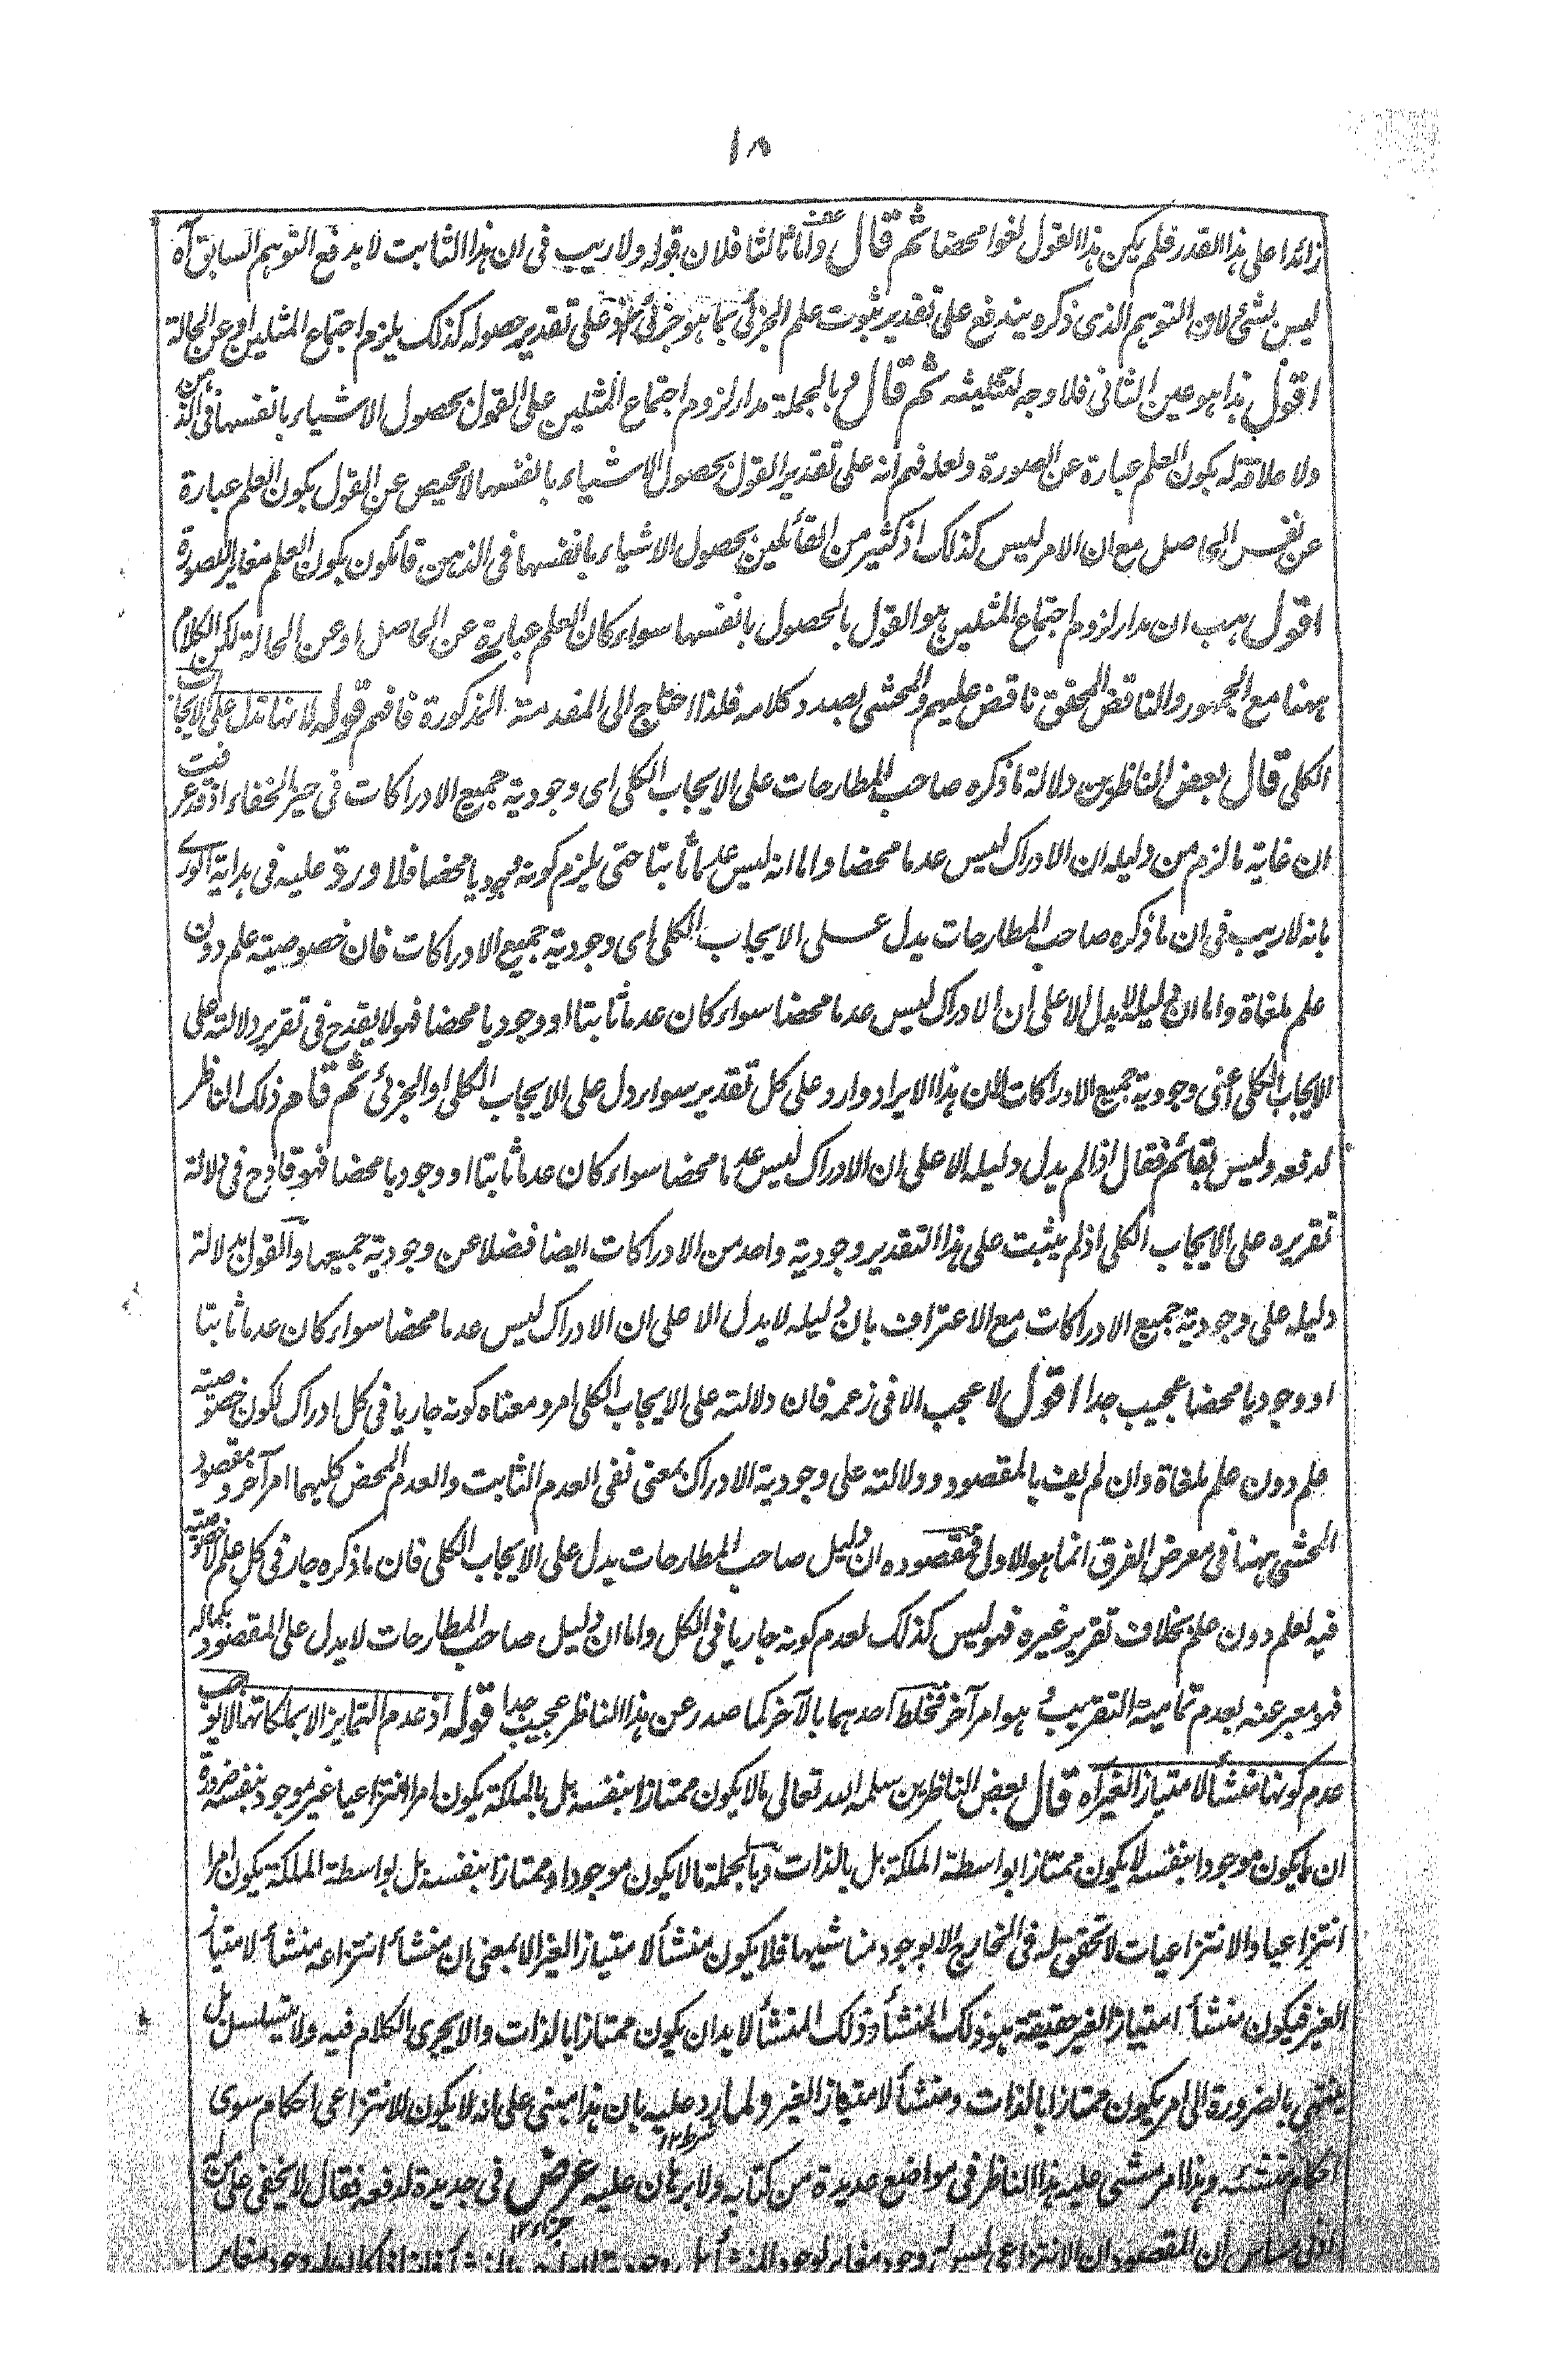 ١٨
زائدا على هذا القدر فلم يكن هذا القول لغوا محضا ثم قال عفى وأما ثالثا فلان قوله ولا ريب فى ان هذا الثابت لا يدفع التوهم السابق آه
ليس بشئ لان التوهم الذى ذكره يندفع على تقدير ثبوت علم الجزئى بما هو جزئى على تقدير حصوله كذلك يلزم اجتماع المثلين او عن الحالة
اقول هذا هو عين الثانى فلا وجه لتثليثه ثم قال وبالجملة مدار لزوم اجتماع المثلين على القول بحصول الاشياء بانفسها فى الذهن
ولا علاقة له بكون العلم عبارة عن الصورة ولعله فهم انه على تقدير القول بحصول الاشياء بانفسها لا محيص عن القول بكون العلم عبارة
عن نفس الحاصل مع ان الامر ليس كذلك اذ كثير من القائلين بحصول الاشياء بانفسها فى الذهن قائلون بكون العلم مغاير للصورة
اقول هب ان مدار لزوم اجتماع المثلين هو القول بالحصول بانفسها سواء كان العلم عبارة عن الحاصل او عن الحالة لكن الكلام
ههنا مع الجمهور والناقض المحقق ناقض عليهم والمحشى بصدد كلامه فلذا احتاج الى المقدمة المذكورة فافهم قوله لانها تدل على الايجاب
الكلى قال بعض الناظرين دلالة ما ذكره صاحب المطارحات على الايجاب الكلى اى وجودية جميع الادراكات فى حيز الخفاء اذ قد عرفت
ان غاية ما لزم من دليله ان الادراك ليس عدما محضا واما انه ليس عدما ثابتا حتى يلزم كونه وجوديا محضا فلا ورد عليه فى هداية الورى
بانه لا ريب فى ان ما ذكره صاحب المطارحات يدل على الايجاب الكلى اى وجودية جميع الادراكات فان خصوصية علم دون
علم ملغاة واما ان دليله لا يدل الا على ان الادراك ليس عدما محضا سواء كان عدما ثابتا او وجوديا محضا فهو لا يقدح فى تقرير دلالته على
الايجاب الكلى اعنى وجودية جميع الادراكات لان هذا الايراد وارد على كل تقدير سواء دل على الايجاب الكلى او الجزئى ثم قام ذلك الناظر
لدفعه وليس بقائم فقال اذا لم يدل دليله الا على ان الادراك ليس عدما محضا سواء كان عدما ثابتا او وجوديا محضا فهو قادح فى دلالة
تقريره على الايجاب الكلى اذ لم يثبت على هذا التقدير وجودية واحد من الادراكات ايضا فضلا عن وجودية جميعها والقول بدلالة
دليله على وجودية جميع الادراكات مع الاعتراف بان دليله لا يدل الا على ان الادراك ليس عدما محضا سواء كان عدما ثابتا
او وجوديا محضا عجيب جدا اقول لا عجب الا فى زعمه فان دلالته على الايجاب الكلى امر ومعناه كونه جاريا فى كل ادراك لكون خصوصية
علم دون علم ملغاة وان لم يف بالمقصود ودلالته على وجودية الادراك بمعنى نفى العدم الثابت والعدم المحض كليهما امر آخر ومقصود
المحشى ههنا فى معرض الفرق انما هو الاول فمقصوده ان دليل صاحب المطارحات يدل على الايجاب الكلى فان ما ذكره جار فى كل علم لا خصوصية
فيه لعلم دون علم بخلاف تقرير غيره فهو ليس كذلك لعدم كونه جاريا فى الكل واما ان دليل صاحب المطارحات لا يدل على المقصود بكماله
فهو معبر عنه بعدم تمامية التقريب هو امر آخر فخلط احدهما بالآخر كما صدر عن هذا الناظر عجيب جدا قوله اذ عدم التمايز الا بملكاتها لا يوجب
عدم كونها منشأ لامتياز الغير آه قال بعض الناظرين سلمه الله تعالى ما لا يكون ممتازا بنفسه بل بالملكة يكون امرا انتزاعيا غير موجود بنفسه ضرورة
ان ما يكون موجودا بنفسه لا يكون ممتازا بواسطة الملكة بل بالذات وبالجملة ما لا يكون موجودا وممتازا بنفسه بل بواسطة الملكة يكون امرا
انتزاعيا والانتزاعيات لا تحقق له فى الخارج الا بوجود مناشيها فلا يكون منشأ لامتياز الغير الا بمعنى ان منشأ انتزاعه منشأ لامتياز
الغير فيكون منشأ امتياز الغير حقيقة هو ذلك المنشأ وذلك المنشأ لا بد ان يكون ممتازا بالذات والا يجرى الكلام فيه ولا يتسلسل بل
ينتهى بالضرورة الى امر يكون ممتازا بالذات ومنشأ لامتياز الغير ولما رد عليه بان هذا مبنى على انه لا يكون للانتزاعى احكام سوى
احكام منشئه وهذا امر مشى عليه هذا الناظر فى مواضع عديدة من كتابه ولا برهان عليه عرض فى جديدة لدفعه فقال لا يخفى على من له
ادنى مساس ان المقصود ان الانتزاعى ليس له وجود مغاير لوجود المنشأ بل